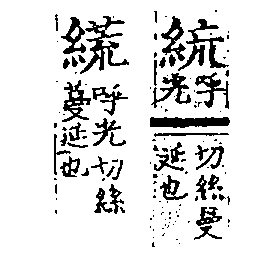 呼
光
切絲曼
延也
呼光切絲
蔓延也